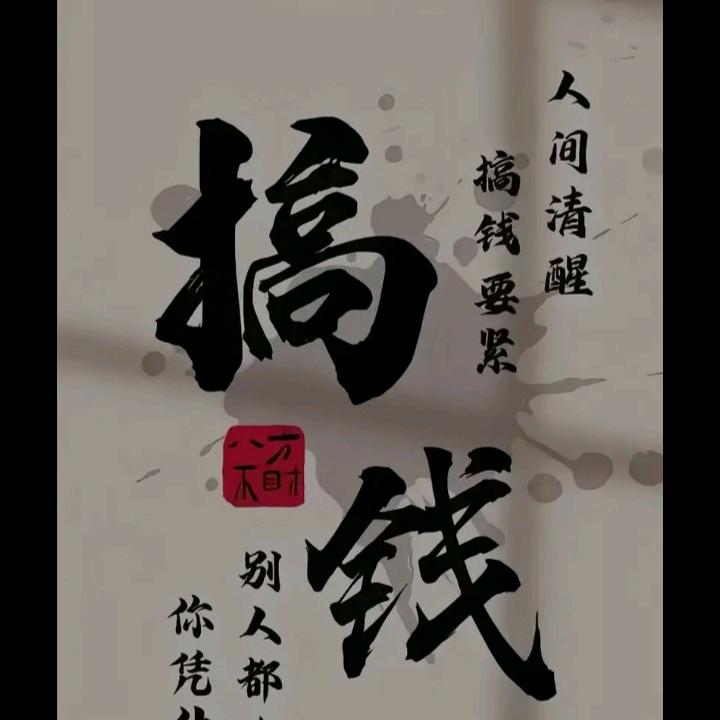 人间清醒
搞钱要紧
搞钱
八方
不财
别人都
你凭